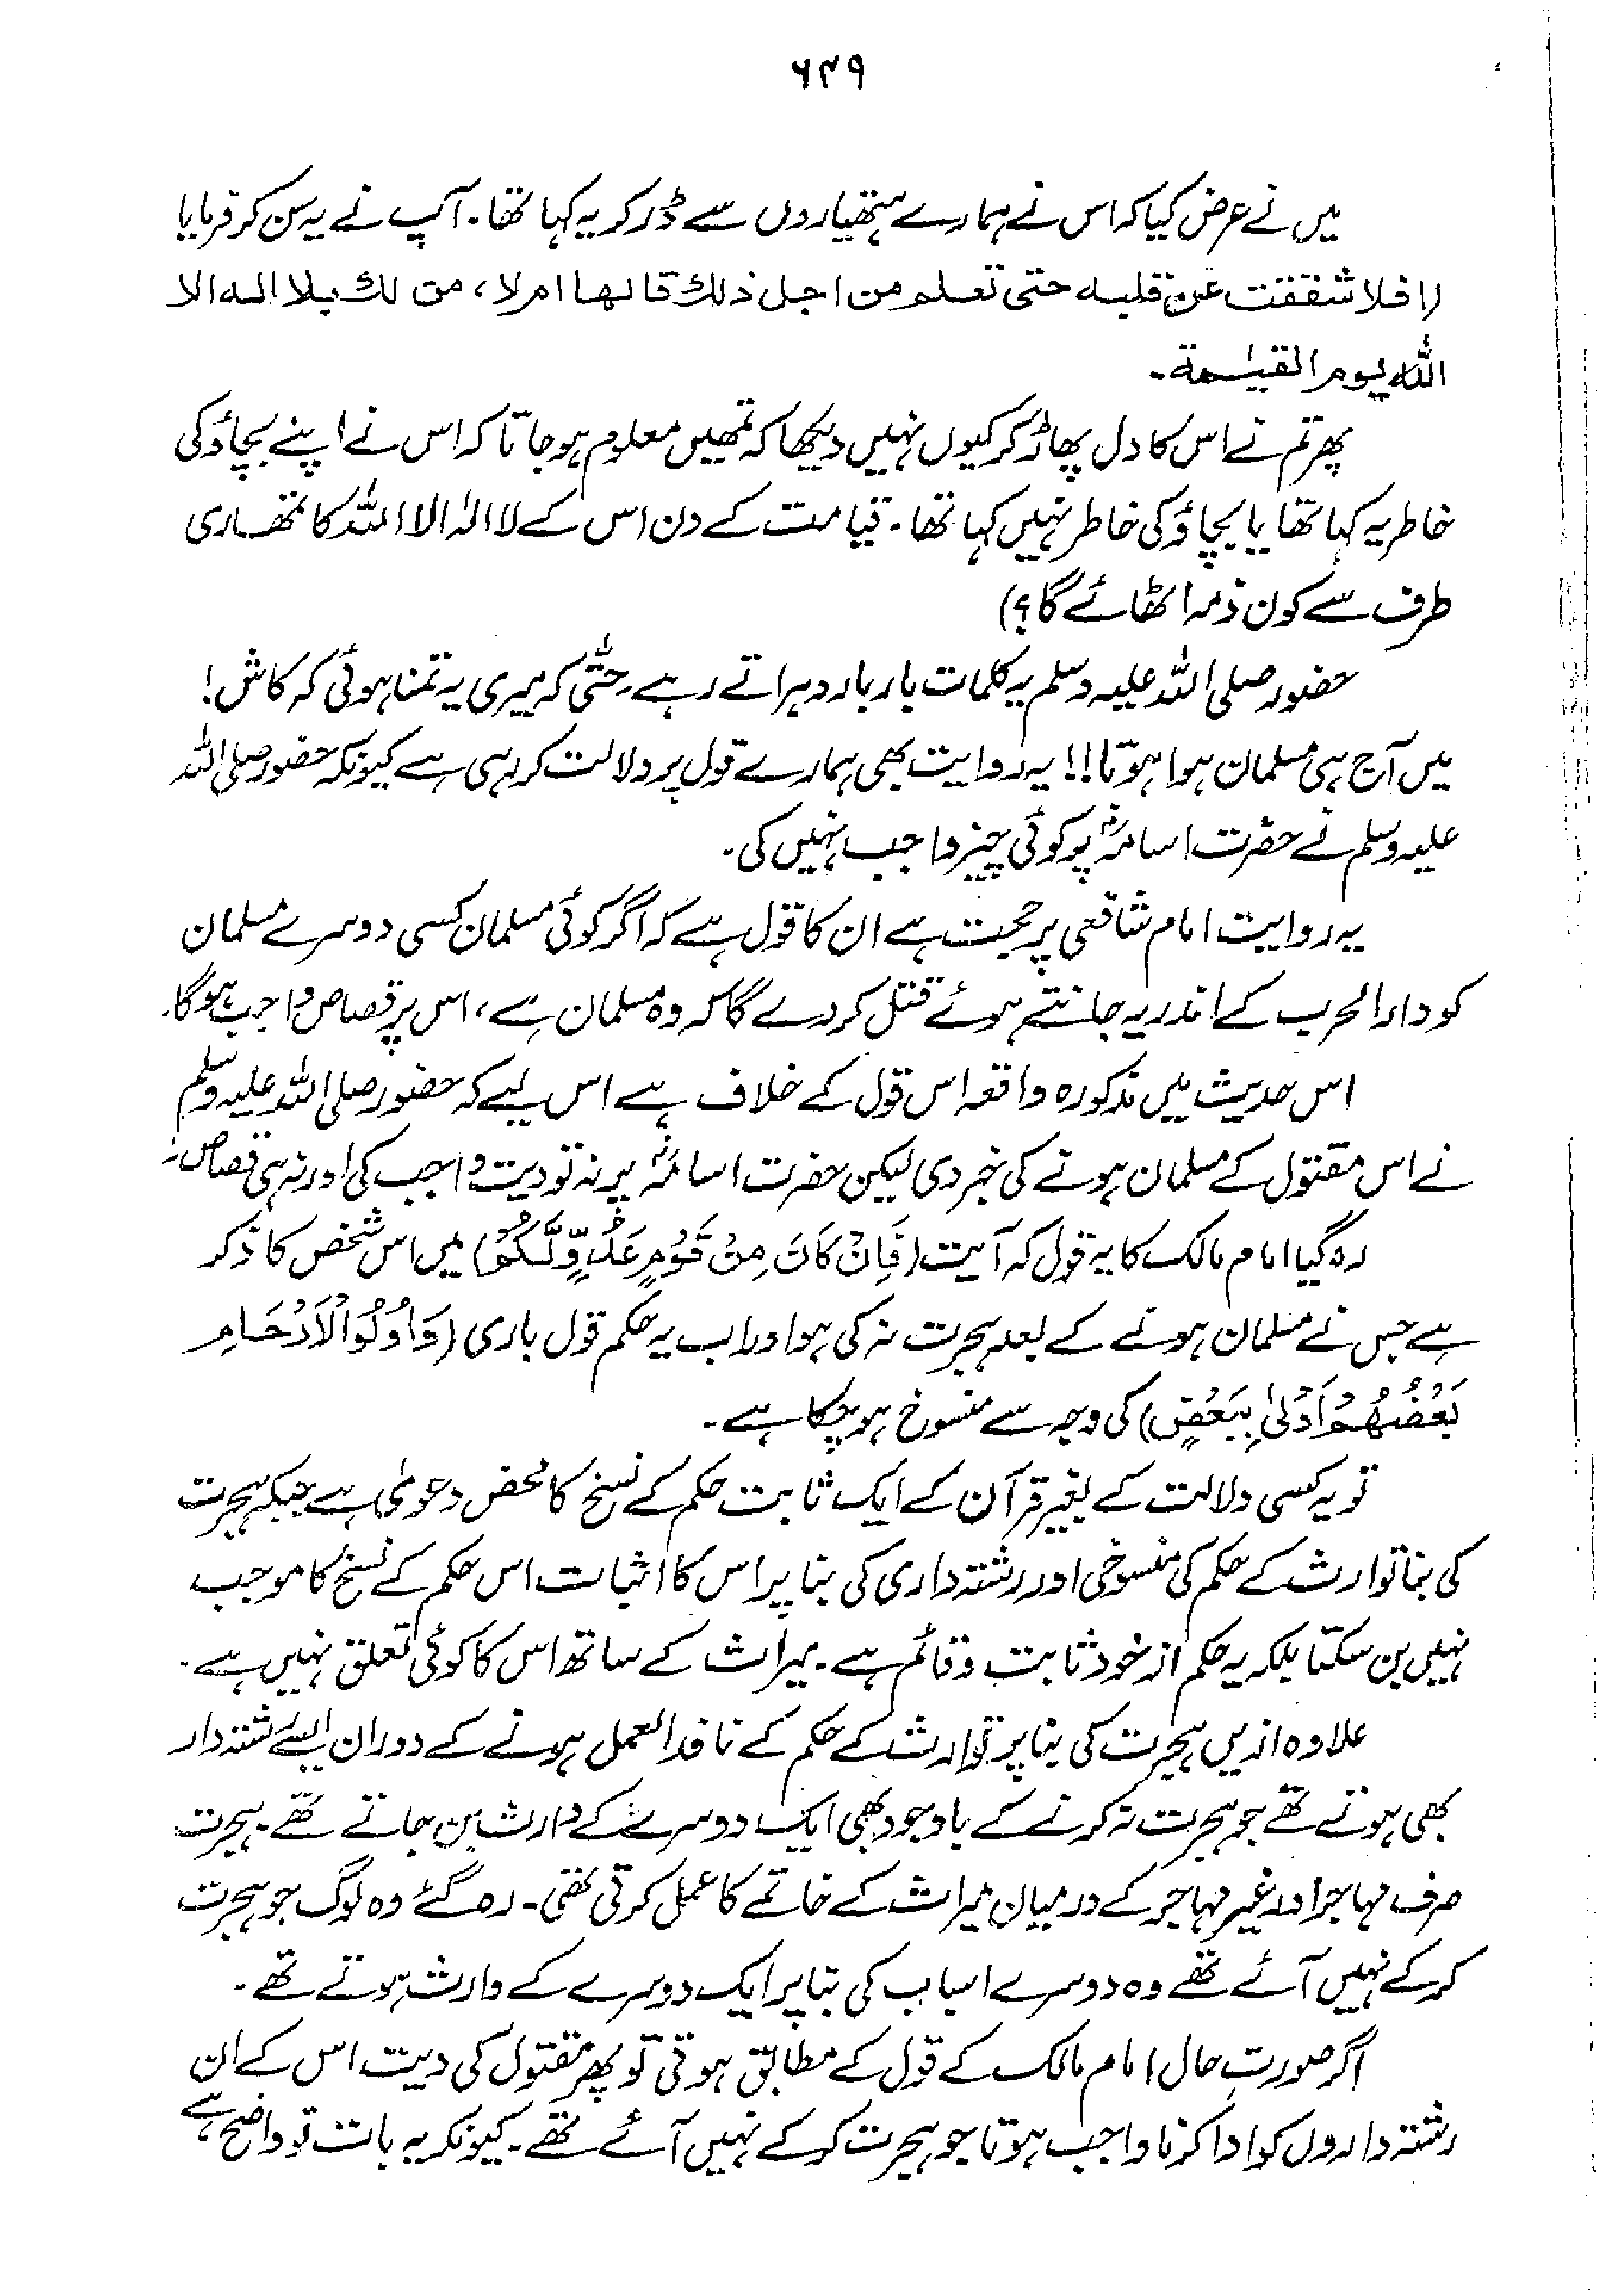 ۶۴۹
میں نے عرض کیا کہ اس نے ہمارے ہتھیاروں سے ڈر کر یہ کہا تھا۔ آپ نے یہ سن کر فرمایا
(افلا شققت عن قلبہ حتی تعلم من اجل ذلك قالها ام لا، من لك بلا الہ الا
اللہ یوم القیٰمۃ۔
پھر تم نے اس کا دل پھاڑ کر کیوں نہیں دیکھا کہ تمھیں معلوم ہو جاتا کہ اس نے اپنے بچاؤ کی
خاطر یہ کہا تھا یا بچاؤ کی خاطر نہیں کہا تھا۔ قیامت کے دن اس کے لا الہٰ الا اللہ کا تمھاری
طرف سے کون ذمہ اٹھائے گا؟)
حضور صلی اللہ علیہ وسلم یہ کلمات بار بار دہراتے رہے۔ حتّٰی کہ میری یہ تمنا ہوئی کہ کاش!
میں آج ہی مسلمان ہوا ہوتا!! یہ روایت بھی ہمارے قول پر دلالت کر رہی ہے کیونکہ حضور صلی اللہ
علیہ وسلم نے حضرت اسامہؓ پر کوئی چیز واجب نہیں کی۔
یہ روایت امام شافعی پر حجت ہے ان کا قول ہے کہ اگر کوئی مسلمان کسی دوسرے مسلمان
کو دار الحرب کے اندر یہ جانتے ہوئے قتل کر دے گا کہ وہ مسلمان ہے، اس پر قصاص واجب ہوگا۔
اس حدیث میں مذکورہ واقعہ اس قول کے خلاف ہے اس لیے کہ حضور صلی اللہ علیہ وسلم
نے اس مقتول کے مسلمان ہونے کی خبر دی لیکن حضرت اسامہؓ پر نہ تو دیت واجب کی اور نہ ہی قصاص۔
رہ گیا امام مالک کا یہ قول کہ آیت (فَاِنْ کَانَ مِنْ قَوْمٍ عَدُوٍّ لَّکُمْ) میں اس شخص کا ذکر
ہے جس نے مسلمان ہونے کے بعد ہجرت نہ کی ہو اور اب یہ حکم قول باری (وَاُولُوا الْاَرْحَامِ
بَعْضُهُمْ اَوْلٰی بِبَعْضٍ) کی وجہ سے منسوخ ہو چکا ہے۔
تو یہ کسی دلالت کے بغیر قرآن کے ایک ثابت حکم کے نسخ کا محض دعویٰ ہے جبکہ ہجرت
کی بنا توارث کے حکم کی منسوخی اور رشتہ داری کی بنا پر اس کا اثبات اس حکم کے نسخ کا موجب
نہیں بن سکتا بلکہ یہ حکم از خود ثابت و قائم ہے۔ میراث کے ساتھ اس کا کوئی تعلق نہیں ہے۔
علاوہ ازیں ہجرت کی بنا پر توارث کے حکم کے نافذ العمل ہونے کے دوران ایسے رشتہ دار
بھی ہوتے تھے جو ہجرت نہ کرنے کے باوجود بھی ایک دوسرے کے وارث بن جاتے تھے۔ ہجرت
صرف مہاجر اور غیر مہاجر کے درمیان میراث کے خاتمے کا عمل کرتی تھی۔ رہ گئے وہ لوگ جو ہجرت
کر کے نہیں آئے تھے وہ دوسرے اسباب کی بنا پر ایک دوسرے کے وارث ہوتے تھے۔
اگر صورت حال امام مالک کے قول کے مطابق ہوتی تو پھر مقتول کی دیت اس کے ان
رشتہ داروں کو ادا کرنا واجب ہوتا جو ہجرت کر کے نہیں آئے تھے۔ کیونکہ یہ بات تو واضح ہے